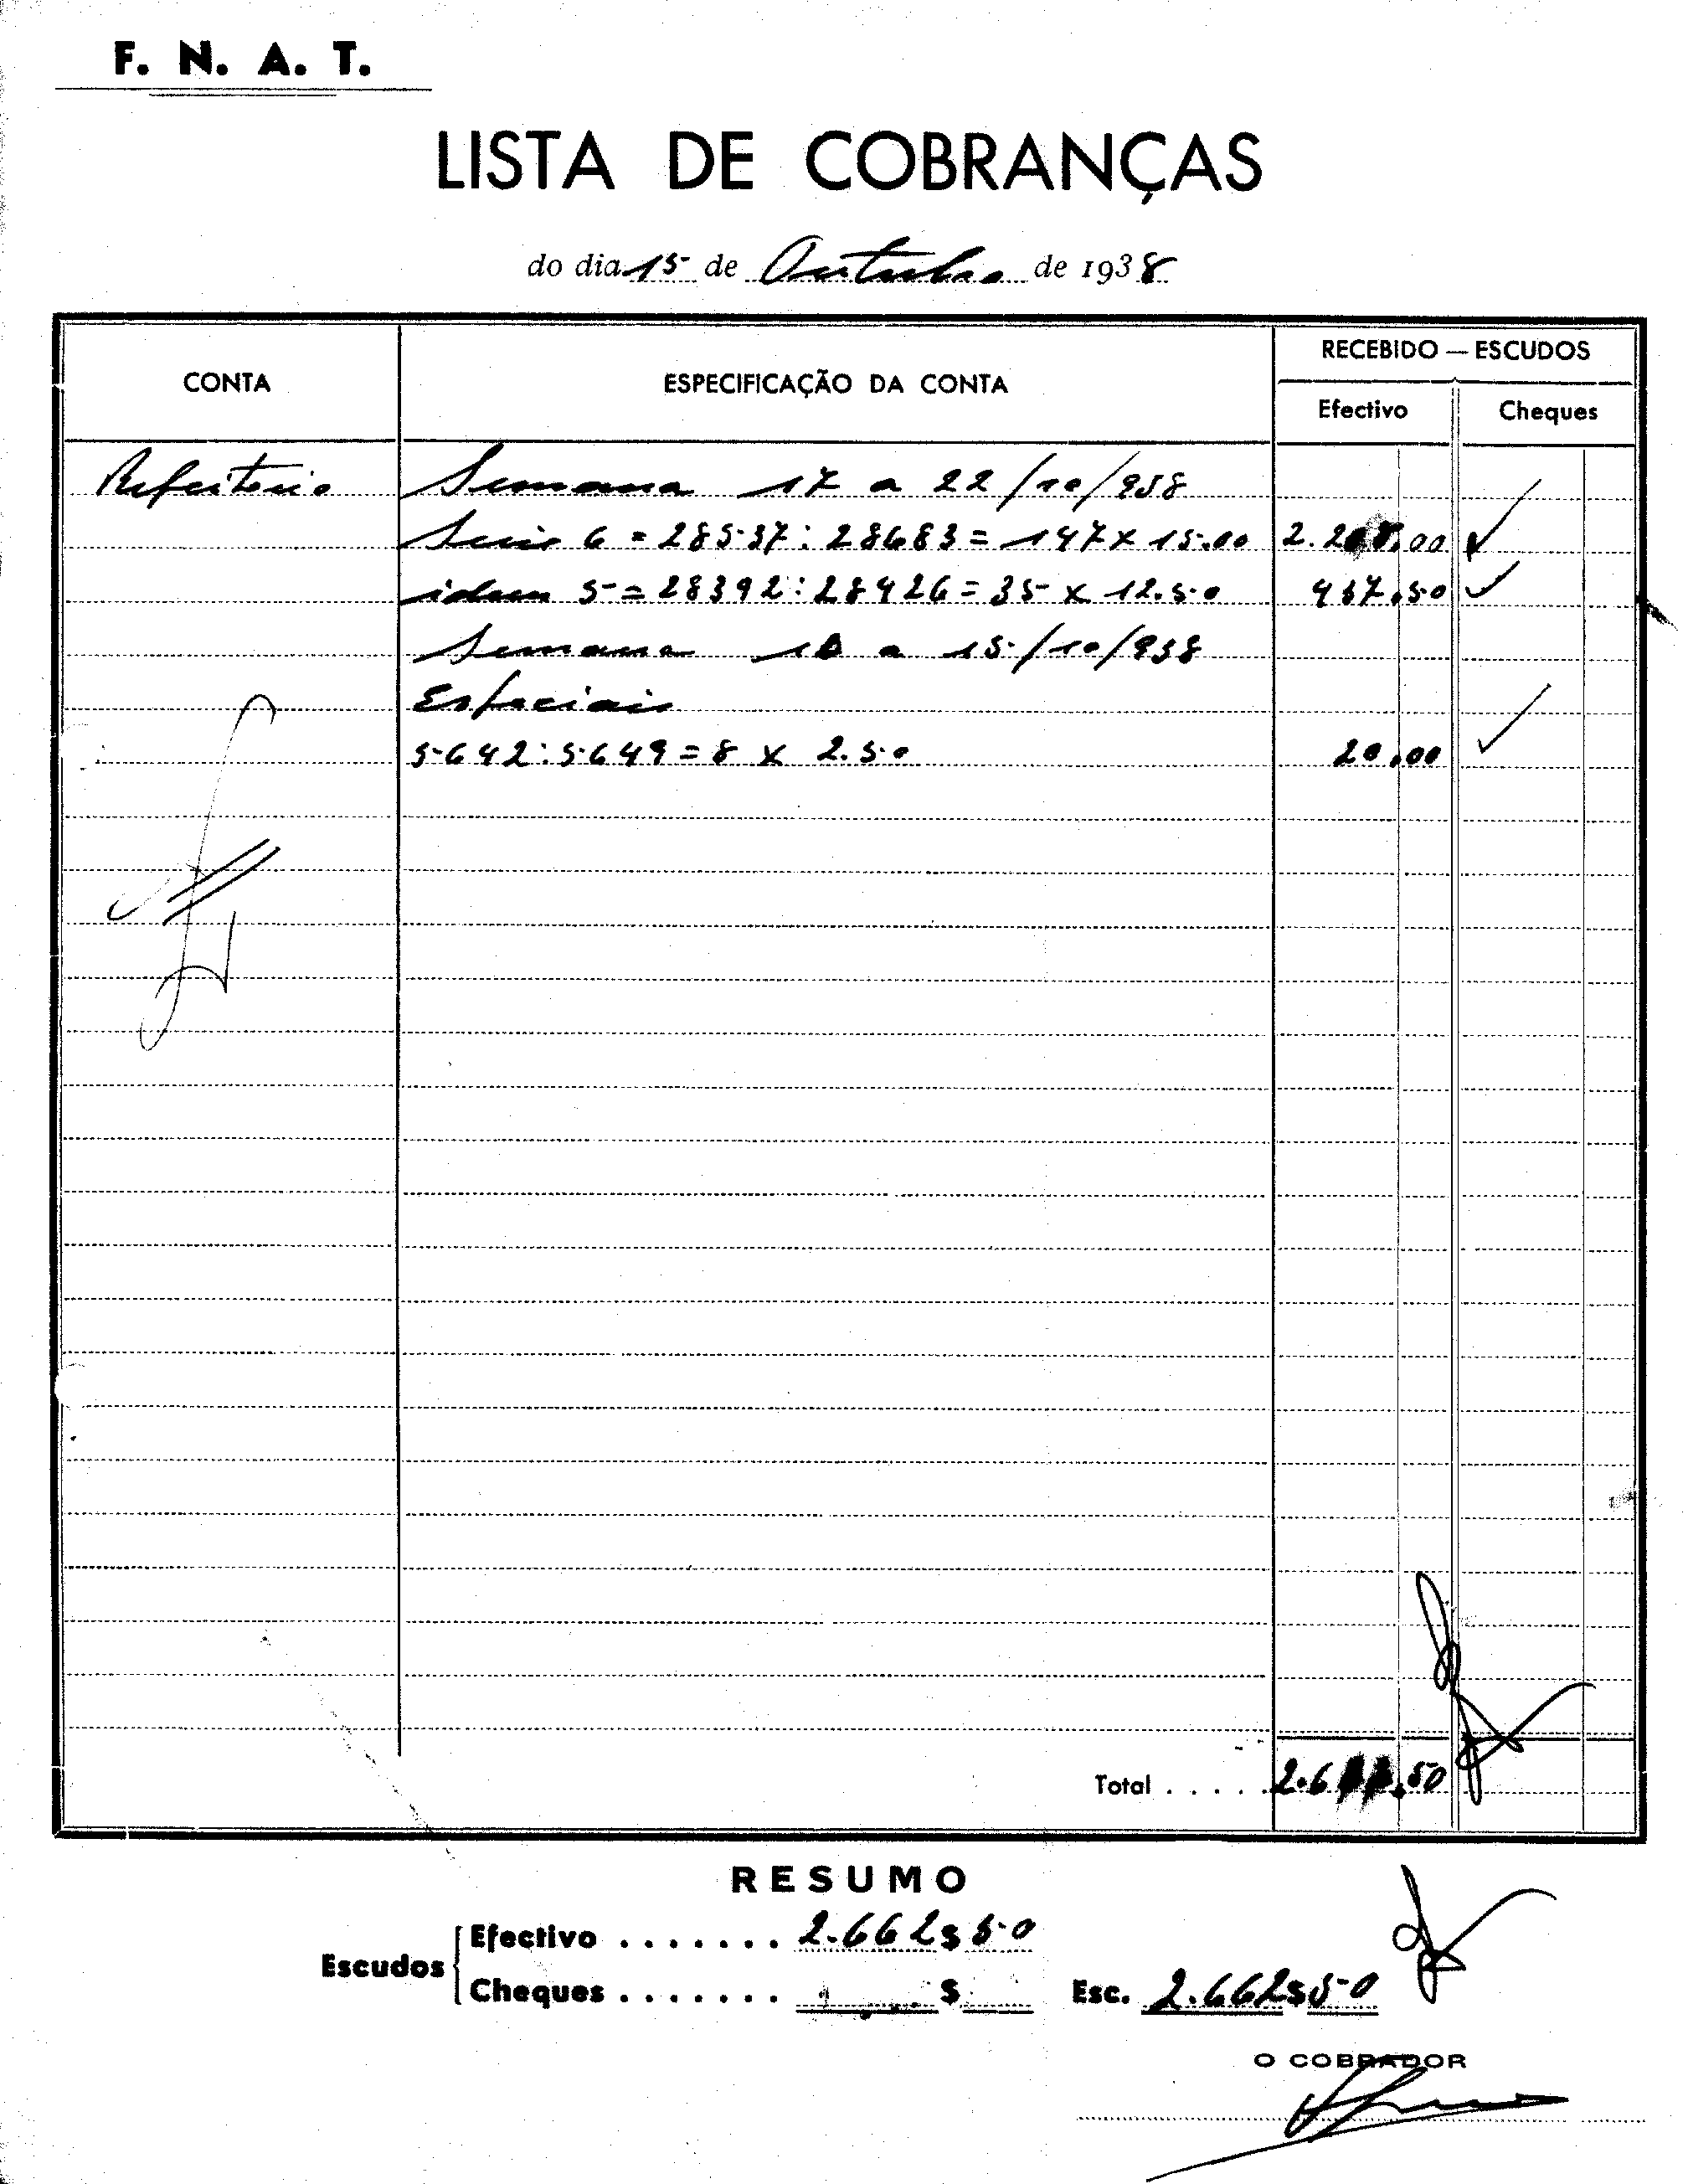 F. N. A. T.
LISTA DE COBRANÇAS
do dia 15 de Outubro de 1938
CONTA ESPECIFICAÇÃO DA CONTA RECEBIDO — ESCUDOS
Efectivo Cheques
Refeitorio Semana 17 a 22/10/938
Serie 6 = 28537 : 28683 = 147 x 15.00 2.205.00
idem 5 = 28392 : 28426 = 35 x 12.50 437.50
Semana 10 a 15/10/938
Especiais
5642 : 5649 = 8 x 2.50 20.00
Total . . . . . 2.6 .50
RESUMO
Escudos Efectivo . . . . . . . 2.662$50
Cheques . . . . . . . $ Esc. 2.662$50
O COBRADOR